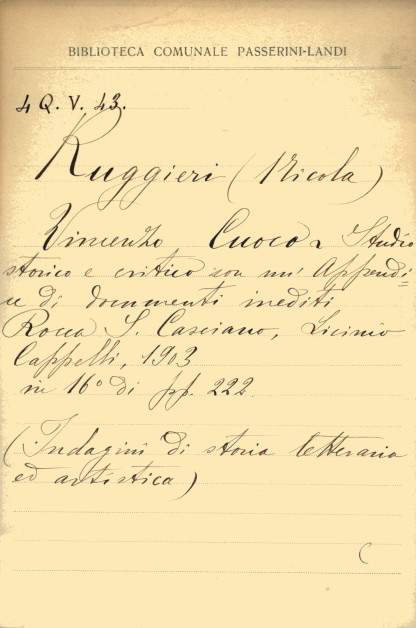 BIBLIOTECA COMUNALE PASSERINI-LANDI
4 Q. V. 43.
Ruggieri (Nicola)
Vincenzo Cuoco. Studio
storico e critico con un' Appendi=
ce di documenti inediti
Rocca S. Casciano, Licinio
Cappelli, 1903
in 16° di pp. 222.
(Indagini di storia letteraria
ed artistica)